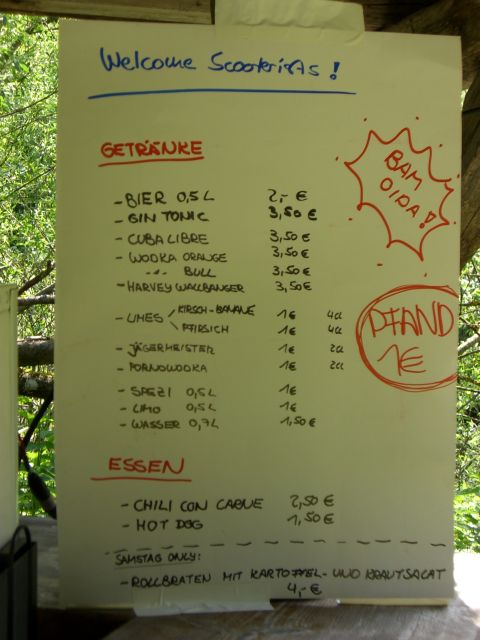 Welcome Scooterists!
GETRÄNKE
BAM
OIDA!
- BIER 0,5 L 2,- €
- GIN TONIC 3,50 €
- CUBA LIBRE 3,50 €
- WODKA ORANGE 3,50 €
-"- BULL 3,50 €
- HARVEY WALLBANGER 3,50 €
PFAND
1€
- LIMES KIRSCH-BANANE 1€ 4cl
PFIRSICH 1€ 4cl
- JÄGERMEISTER 1€ 2cl
- PORNOWODKA 1€ 2cl
- SPEZI 0,5 L 1€
- LIMO 0,5 L 1€
- WASSER 0,7 L 1,50 €
ESSEN
- CHILI CON CARNE 2,50 €
- HOT DOG 1,50 €
SAMSTAG ONLY:
- ROLLBRATEN MIT KARTOFFEL- UND KRAUTSALAT
4,- €